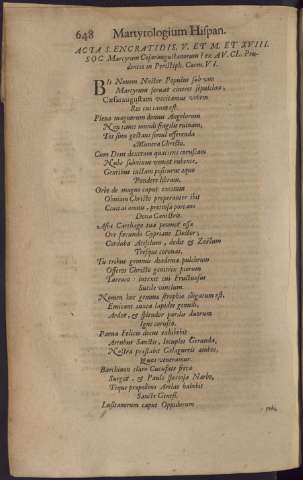 648 Martyrologium Hispan.
ACTA S. ENGRATIDIS. V. ET M. ET XVIII.
SOC. Martyrum Cæsaraugustanorum : ex AV. CL. Pru-
dentio in Peristeph. Carm. VI.
BIs Novem Noster Populus sub uno
Martyrum servat cineres sepulchro,
Cæsaraugustam vocitamus urbem
Res cui tanta est.
Plena magnorum domus Angelorum
Non timet mundi fragilis ruinam,
Tot sinu gestans simul offerenda
Munera Christo.
Cum Deus dextram quatiens coruscam
Nube subnixus veniet rubente,
Gentibus iustam positurus æquo
Pondere libram.
Orbe de magno caput excitata
Obviam Christo properanter ibit
Civitas omnis, pretiosa portans
Dona Canistris.
Afra Carthago tua promet ossa
Ore facundo Cypriane Doctor;
Corduba Acisclum, dabit & Zoëlum
Tresque coronas.
Tu tribus gemmis diadema pulchrum
Offeres Christo genitrix piorum
Tarraco : intexit cui Fructuosus
Sutile vinclum.
Nomen hoc gemma strophio illigatum est,
Emicant iuxta lapides gemelli,
Ardet, & splendor parilis duorum
Igne corusco.
Parva Felicis decus exhibebit
Artubus Sanctis, locuples Gerunda,
Nostra præstabit Calagurris ambos,
Quos veneramur.
Barchinon claro Cucufate freta
Surget, & Paulo speciosa Narbo,
Teque præpollens Arelas habebit
Sancte Genesi.
Lusitanorum caput Oppidorum